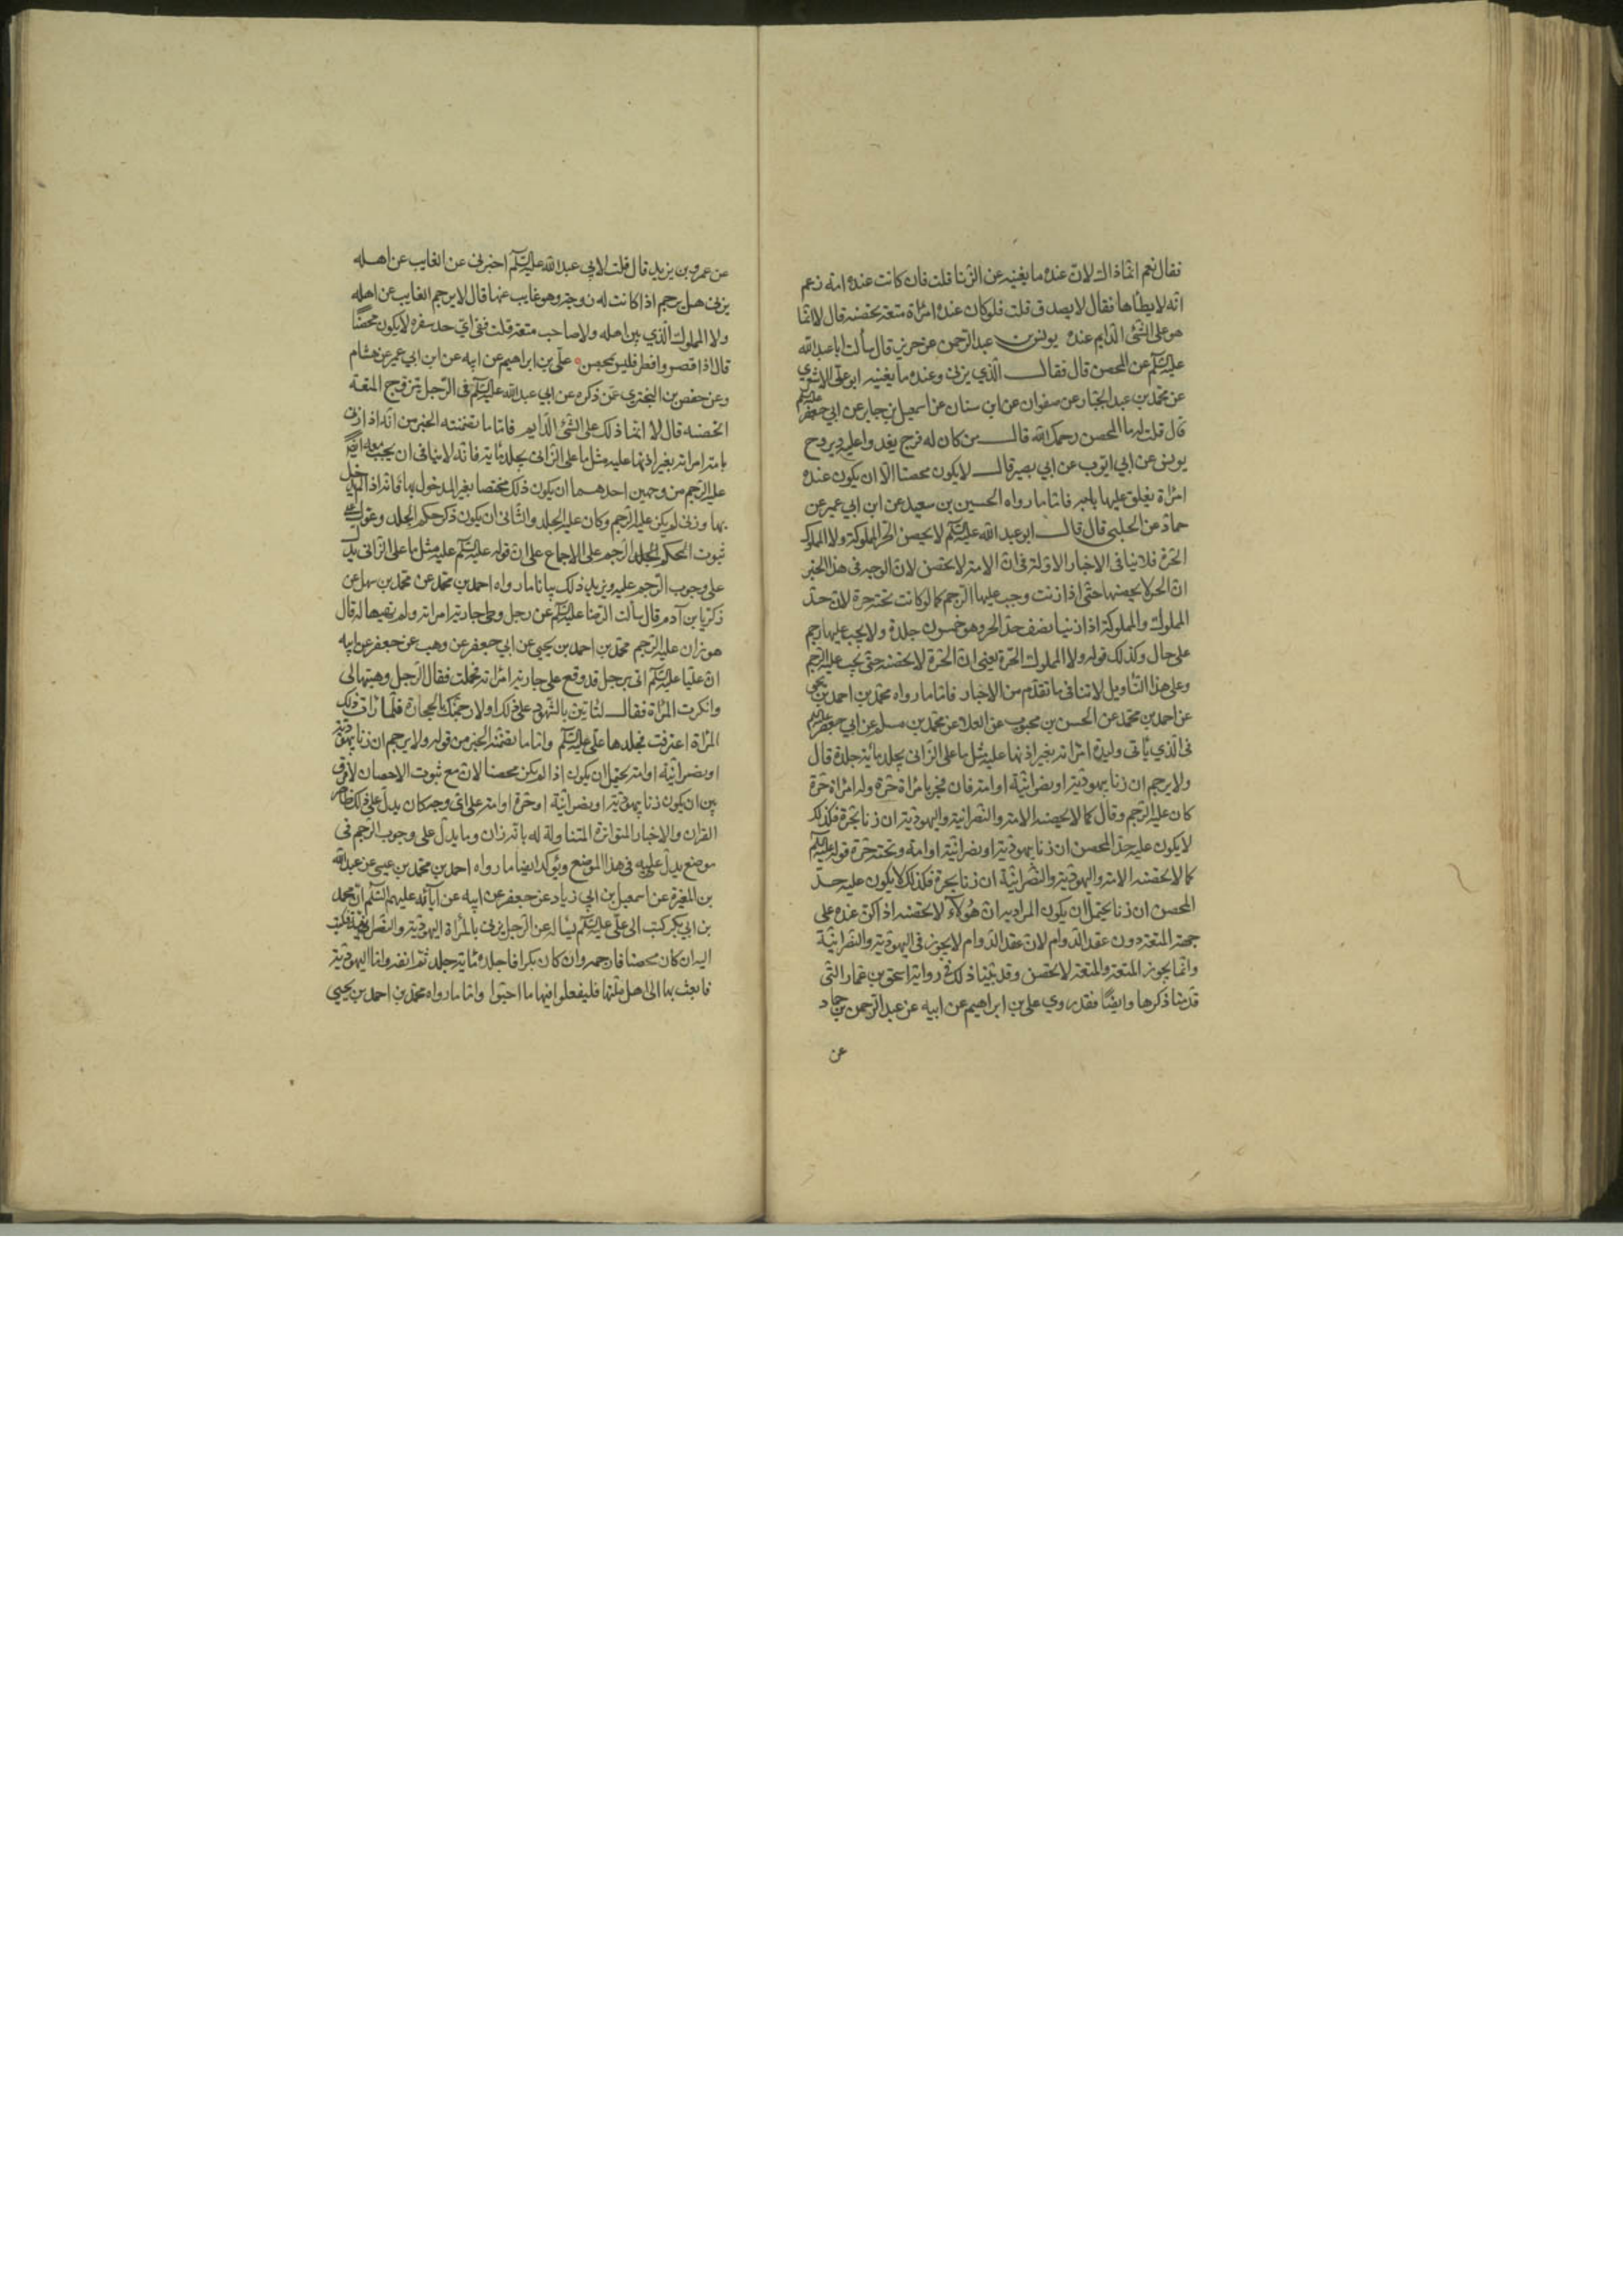 فقال نعم انما ذالك لان عنده ما يغنيه عن الزنا قلت فان كانت عنده امة زعم
انه لا يطأها فقال لا يصدق قلت فلو كان عنده امراة متعة تحصنه قال لا انما
هو على الشئ الدايم عنده يونس بن عبد الرحمن عن حريز قال سألت ابا عبد الله
عليه السلم عن المحصن قال فقال الذي يزنى وعنده ما يغنيه ابو على الاشعري
عن محمد بن عبد الجبار عن صفوان عن ابن سنان عن اسمعيل بن جابر عن ابي جعفر عليه السلم
قال قلت له ما المحصن رحمك الله قال من كان له فرج يغدو عليه ويروح
يونس عن ابي ايوب عن ابي بصير قال لا يكون محصنا الا ان يكون عنده
امراة يغلق عليها بابه فاما ما رواه الحسين بن سعيد عن ابن ابي عمير عن
حماد عن الحلبي قال قال ابو عبد الله عليه السلم لا يحصن الحر المملوكة ولا المملوك
الحرة فلا ينافى الاخبار الاولة فى ان الامة لا تحصن لان الوجه فى هذا الخبر
ان الحر لا يحصنها حتى اذا زنت وجب عليها الرجم كما لو كانت تحته حرة لان حد
المملوك والمملوكة اذا زنيا نصف حد الحر وهو خمسون جلدة ولا يجب عليهما رجم
على حال وكذلك قوله ولا المملوك الحرة يعنى ان الحرة لا تحصنه حتى يجب عليه الرجم
وعلى هذا التأويل لا تنافى ما تقدم من الاخبار فاما ما رواه محمد بن احمد بن يحيى
عن احمد بن محمد عن الحسن بن محبوب عن العلا عن محمد بن مسلم عن ابي جعفر عليه السلم
فى الذي يأتى وليدة امراته بغير اذنها عليه مثل ما على الزانى يجلد مائة جلدة قال
ولا يرجم ان زنا بيهودية او نصرانية او امة فان فجر بامراة حرة وله امراة حرة
كان عليه الرجم وقال كما لا يحصنه الامة والنصرانية واليهودية ان زنا بحرة فكذلك
لا يكون عليه حد المحصن ان زنا بيهودية او نصرانية او امة وتحته حرة قوله عليه السلم
كما لا تحصنه الامة واليهودية والنصرانية ان زنا بحرة فكذلك لا يكون عليه حد
المحصن ان زنا يحتمل ان يكون المراد به ان هؤلآء لا تحصنه اذا كن عنده على
جهة المتعة دون عقد الدوام لان عقد الدوام لا يجوز فى اليهودية والنصرانية
وانما يجوز المتعة والمتعة لا تحصن وقد بينا ذلك فى رواية اسحق بن عمار التى
قدمنا ذكرها وايضًا فقد روي على بن ابراهيم عن ابيه عن عبد الرحمن بن حماد
عن
عن عمرو بن يزيد قال قلت لابي عبد الله عليه السلم اخبرنى عن الغايب عن اهله
يزنى هل يرجم اذا كانت له زوجة وهو غايب عنها قال لا يرجم الغايب عن اهله
ولا المملوك الذي يبن اهله ولا صاحب متعة قلت ففى اي حد سفره لا يكون محصنا
قال اذا قصر وافطر فليس بمحصن على بن ابراهيم عن ابيه عن ابن ابي عمير عن هشام
وعن حفص بن البخترى عمن ذكره عن ابي عبد الله عليه السلم فى الرجل يتزوج المتعة
اتحصنه قال لا انما ذلك على الشئ الدايم فاما ما تضمنته الخبر من انه اذا زنى
بامة امراته بغير اذنها عليه مثل ما على الزانى يجلد مائة فانه لا ينافى ان يجب معه ايضا
عليه الرجم من وجهين احدهما ان يكون ذلك مختصا بغير المدخول بها فانه اذا لم يدخل
بها وزنى لم يكن عليه الرجم وكان عليه الجلد والثانى ان يكون ذكر حكم الجلد وعول على
ثبوت الحكم الجلد الرجم على الاجماع على ان قوله عليه السلم عليه مثل ما على الزانى يدل
على وجوب الرجم عليه ويزيد ذلك بيانا ما رواه احمد بن محمد عن محمد بن سهل عن
زكريا بن آدم قال سألت الرضا عليه السلم عن رجل وطئ جارية امراته ولم تهبها له قال
هو زان عليه الرجم محمد بن احمد بن يحيى عن ابي جعفر عن وهب عن جعفر عن ابيه
ان عليا عليه السلم اتى برجل قد وقع على جارية امراته فحملت فقال الرجل وهبتها لى
وانكرت المراة فقال لتاتين بالشهود على ذلك او لارجمنك بالحجارة فلما رات ذلك
المراة اعترفت فجلدها على عليه السلم واما ما تضمنه الخبر من قوله ولا يرجم ان زنا بيهودية
او نصرانية او امة يحتمل ان يكون اذا لم يكن محصنا لان مع ثبوت الاحصان لا فرق
بين ان يكون زنا بيهودية او نصرانية او حرة او امة على اى وجه كان يدل على ذلك ظاهر
القران والاخبار المتواترة المتناولة له بانه زان وما يدل على وجوب الرجم فى
موضع يدل عليه فى هذا الموضع ويؤكد ايضا ما رواه احمد بن محمد بن عيسى عن عبد الله
بن المغيرة عن اسمعيل بن ابي زياد عن جعفر عن ابيه عن آبآئه عليهم السلم ان محمد
بن ابي بكر كتب الى على عليه السلم يسأله عن الرجل يزنى بالمرأة اليهودية والنصرانية فكتب
اليه ان كان محصنا فارجمه وان كان بكرا فاجلده مائة جلدة ثم انفه واما اليهودية
فابعث بها الى اهل ملتها فليفعلوا فيها ما احبوا واما ما رواه محمد بن احمد بن يحيى